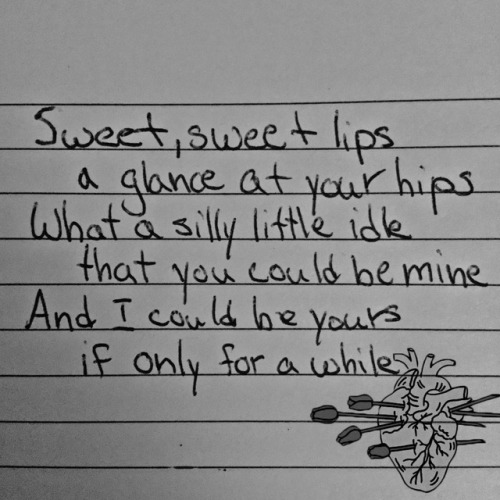 Sweet, sweet lips
a glance at your hips
What a silly little idle
that you could be mine
And I could be yours
if only for a while